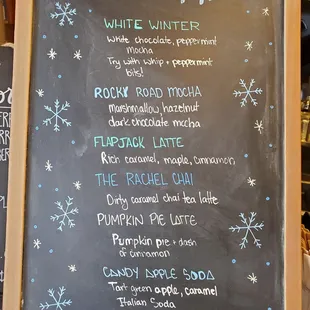 WHITE WINTER
White chocolate, peppermint
mocha
Try with whip + peppermint
bits!
ROCKY ROAD MOCHA
marshmallow hazelnut
dark chocolate mocha
FLAPJACK LATTE
Rich caramel, maple, cinnamon
THE RACHEL CHAI
Dirty caramel chai tea latte
PUMPKIN PIE LATTE
Pumpkin pie + dash
of cinnamon
CANDY APPLE SODA
Tart green apple, caramel
Italian Soda